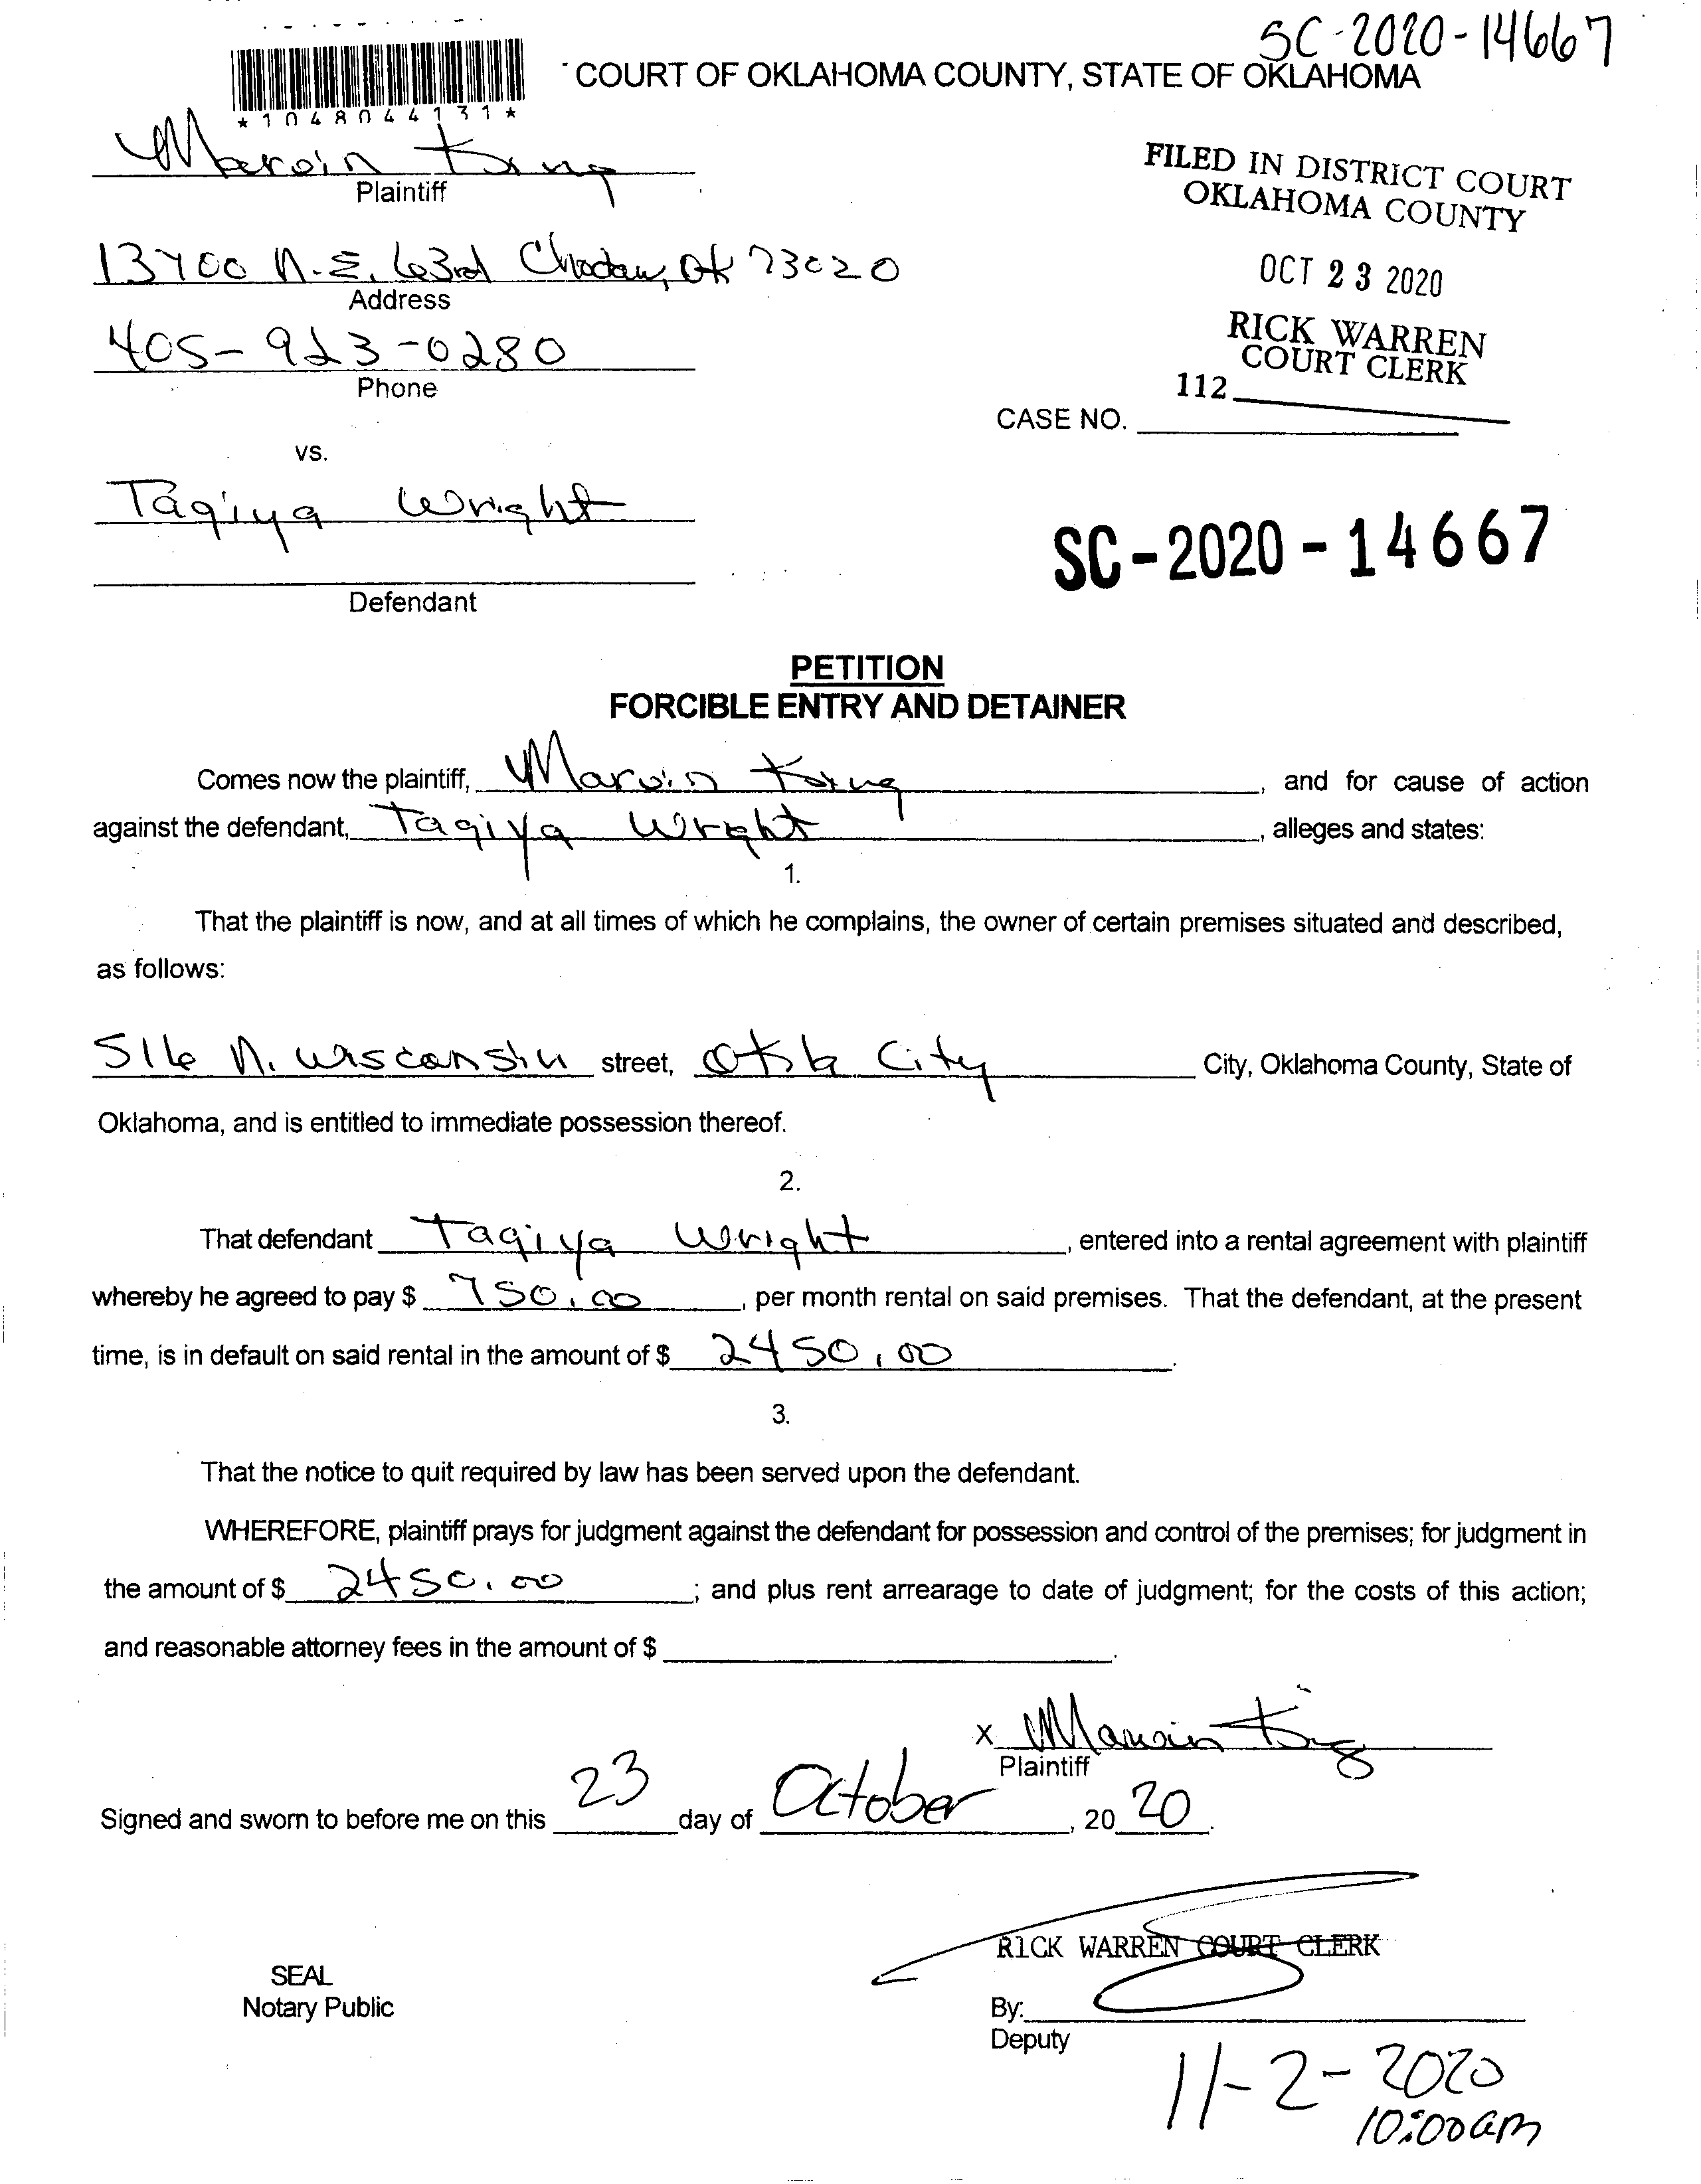 SC-2020-14667
COURT OF OKLAHOMA COUNTY, STATE OF OKLAHOMA
*1048044131*
Marvin King
Plaintiff
FILED IN DISTRICT COURT
OKLAHOMA COUNTY
13400 N.E. 63rd Choctaw, OK 73020
Address
OCT 23 2020
405-923-0280
Phone
RICK WARREN
COURT CLERK
112
CASE NO.
vs.
Taqiya Wright
SC-2020-14667
Defendant
PETITION
FORCIBLE ENTRY AND DETAINER
Comes now the plaintiff, Marvin King, and for cause of action
against the defendant, Taqiya Wright, alleges and states:
1.
That the plaintiff is now, and at all times of which he complains, the owner of certain premises situated and described,
as follows:
516 N. Wisconsin street, Okla City City, Oklahoma County, State of
Oklahoma, and is entitled to immediate possession thereof.
2.
That defendant Taqiya Wright, entered into a rental agreement with plaintiff
whereby he agreed to pay $ 750.00, per month rental on said premises. That the defendant, at the present
time, is in default on said rental in the amount of $ 2450.00.
3.
That the notice to quit required by law has been served upon the defendant.
WHEREFORE, plaintiff prays for judgment against the defendant for possession and control of the premises; for judgment in
the amount of $ 2450.00; and plus rent arrearage to date of judgment; for the costs of this action;
and reasonable attorney fees in the amount of $ .
x Marvin King
Plaintiff
Signed and sworn to before me on this 23 day of October, 2020.
RICK WARREN COURT CLERK
SEAL
Notary Public
By:
Deputy
11-2-2020
10:00am